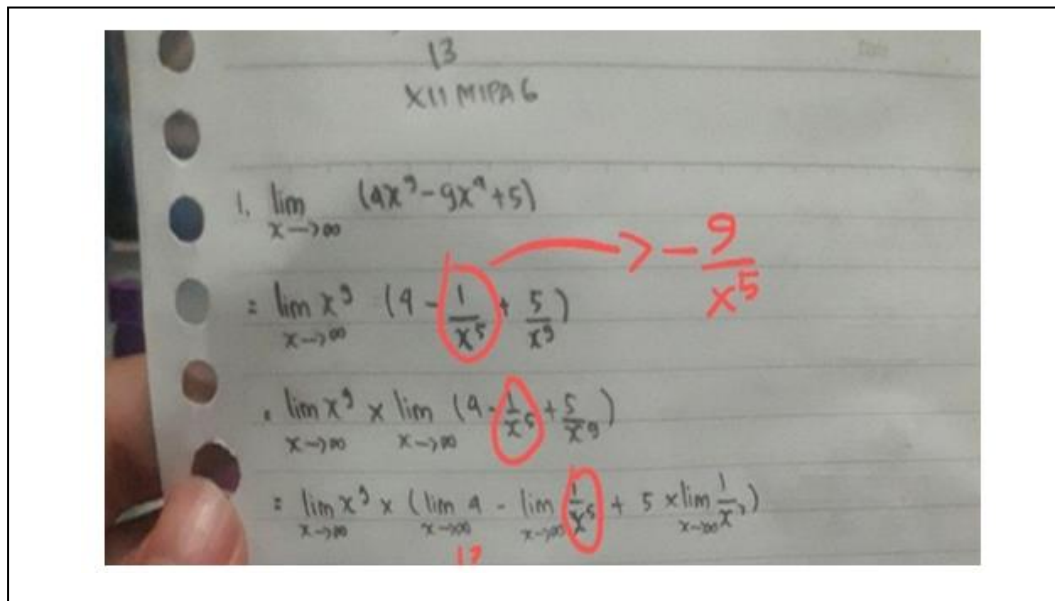 13
Date
XII MIPA 6
1. lim x→∞ (4x⁹ - 9x⁴ + 5)
→ - 9/x⁵
= lim x→∞ x⁹ (4 - 1/x⁵ + 5/x⁹)
= lim x→∞ x⁹ × lim x→∞ (4 - 1/x⁵ + 5/x⁹)
= lim x→∞ x⁹ × (lim x→∞ 4 - lim x→∞ 1/x⁵ + 5 × lim x→∞ 1/x⁹)